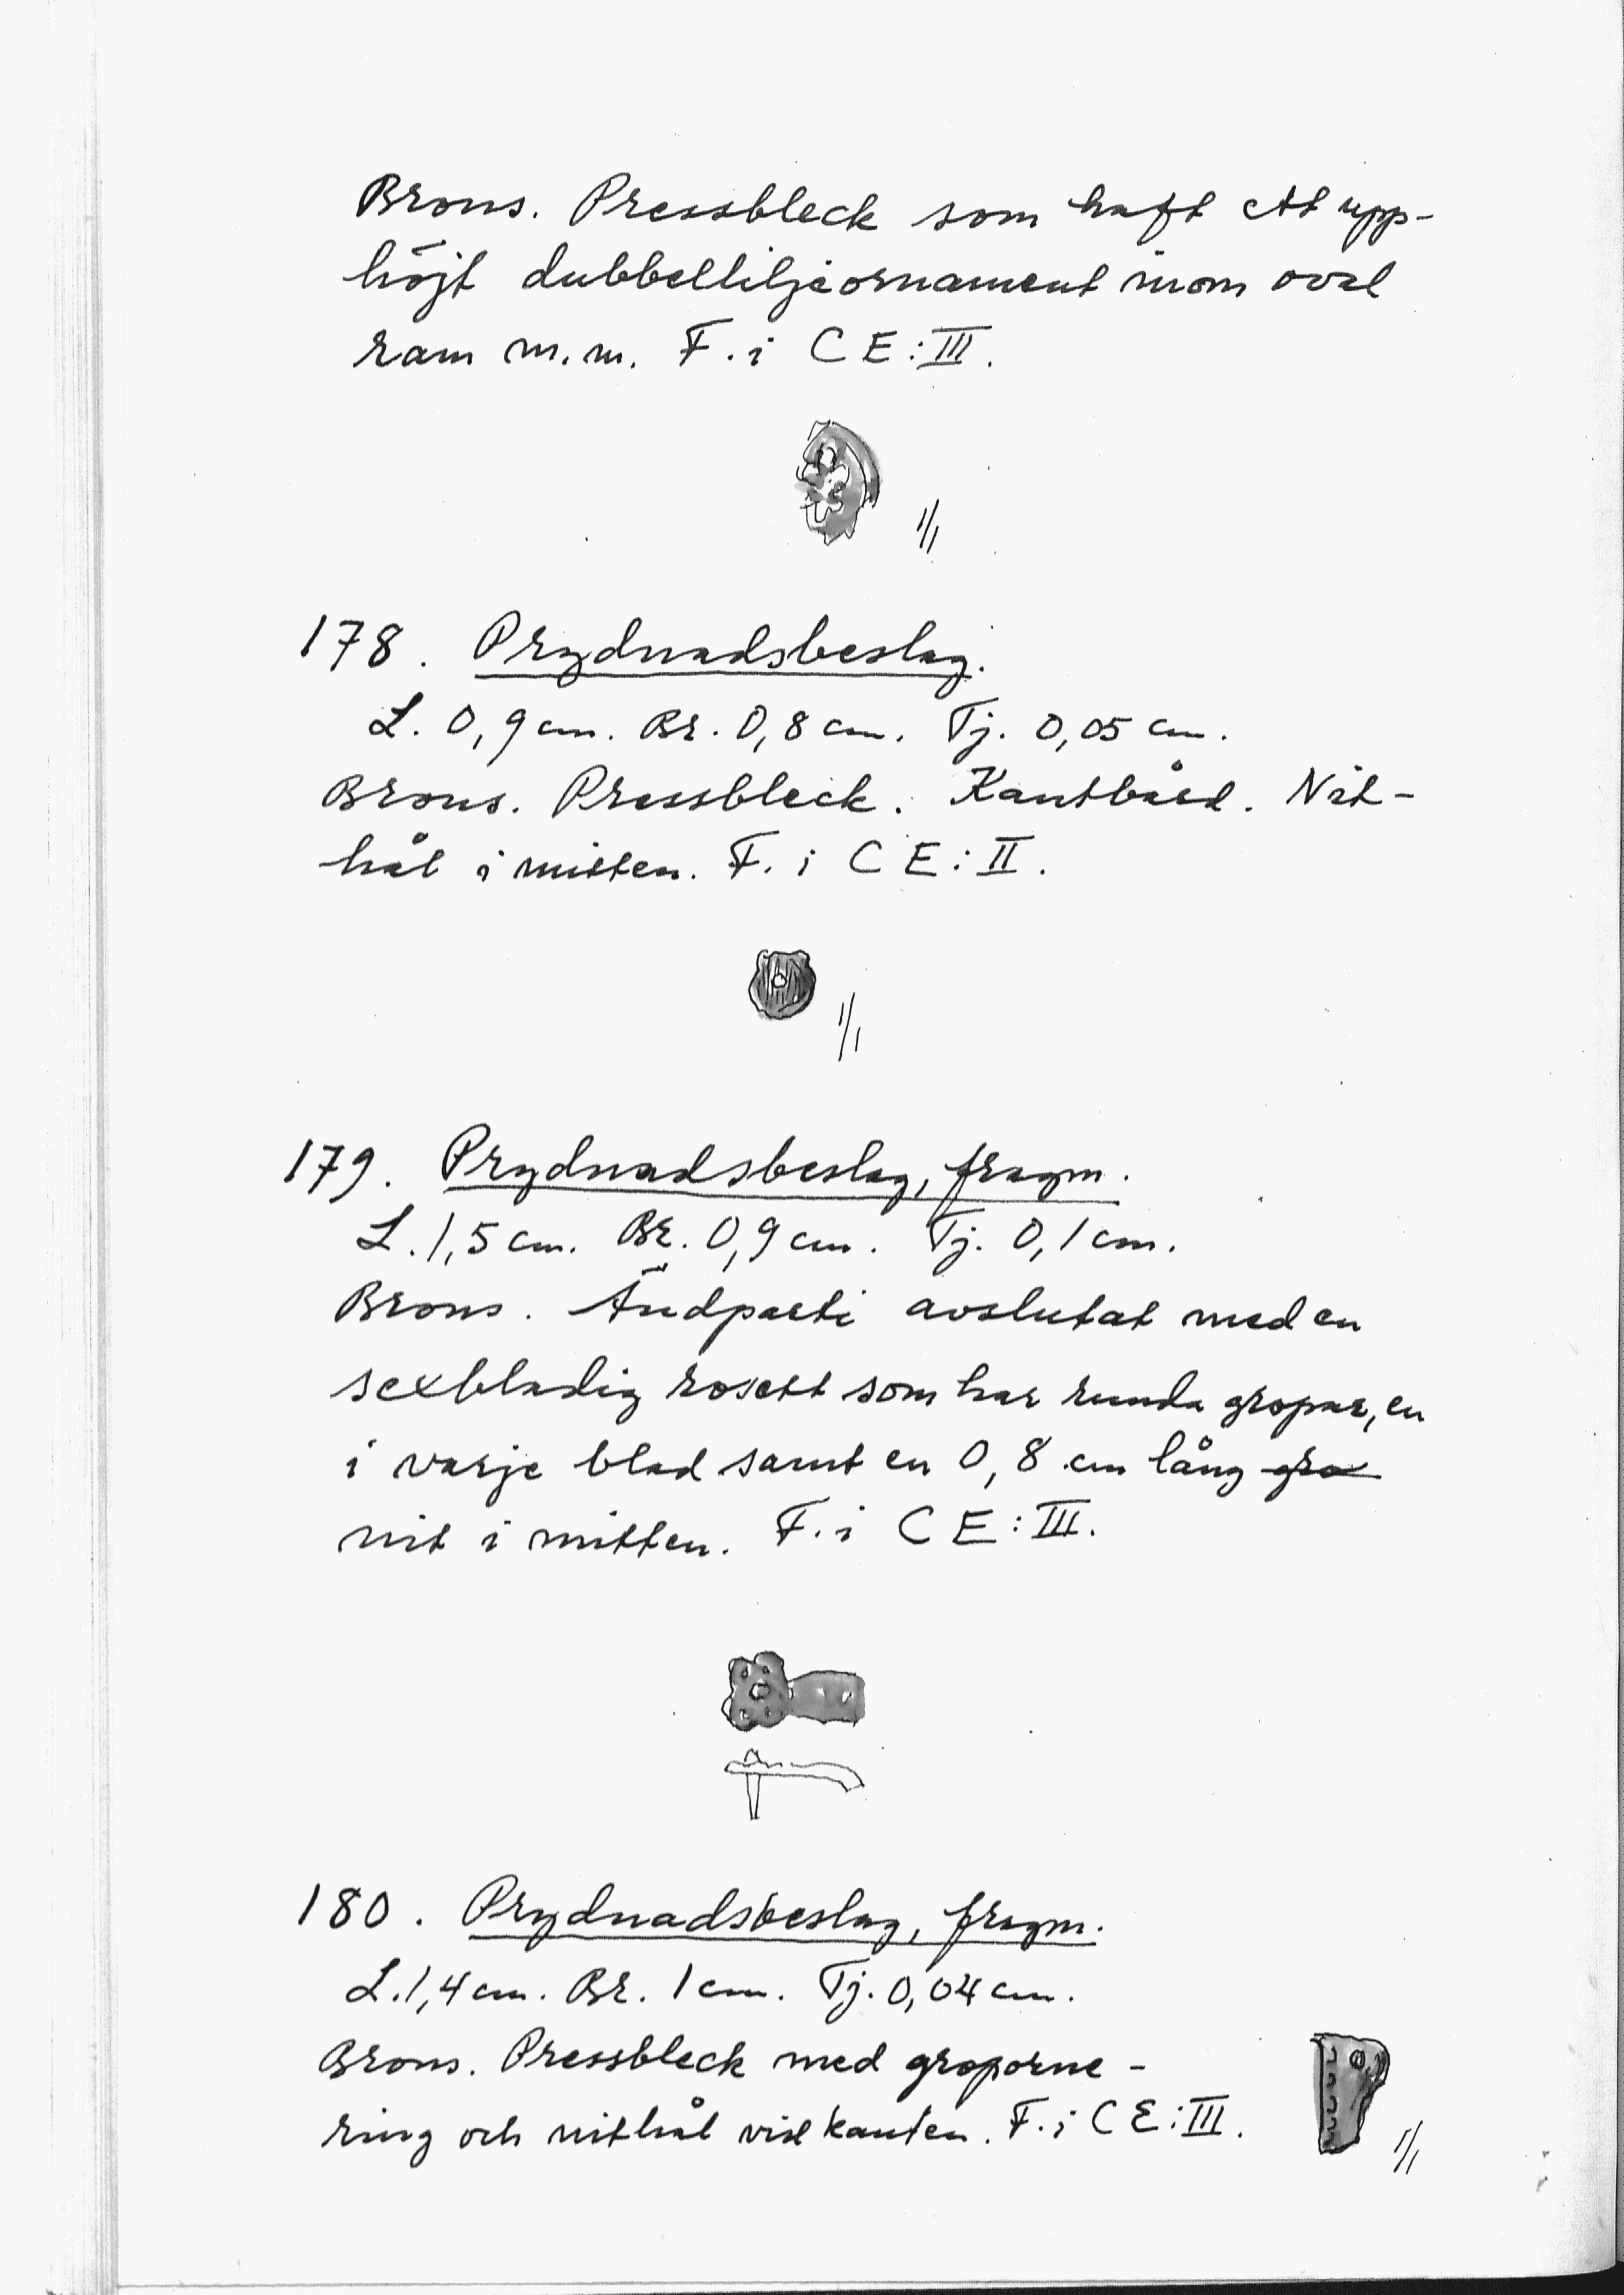 Brons. Pressbleck som haft ett upp-
höjt dubbelliljeornament inom oval
ram m.m. F. i C E : III.
1/1
178. Prydnadsbeslag.
L. 0,9 cm. Br. 0,8 cm. Tj. 0,05 cm.
Brons. Pressbleck. Kantbård. Nit-
hål i mitten. F. i C E : II.
1/1
179. Prydnadsbeslag, fragm.
L. 1,5 cm. Br. 0,9 cm. Tj. 0,1 cm.
Brons. Ändparti avslutat med en
sexbladig rosett som har runda gropar, en
i varje blad samt en 0,8 cm lång gro
nit i mitten. F. i C E : III.
180. Prydnadsbeslag, fragm.
L. 1,4 cm. Br. 1 cm. Tj. 0,04 cm.
Brons. Pressbleck med groporne-
ring och nithål vid kanten. F. i C E : III.
1/1